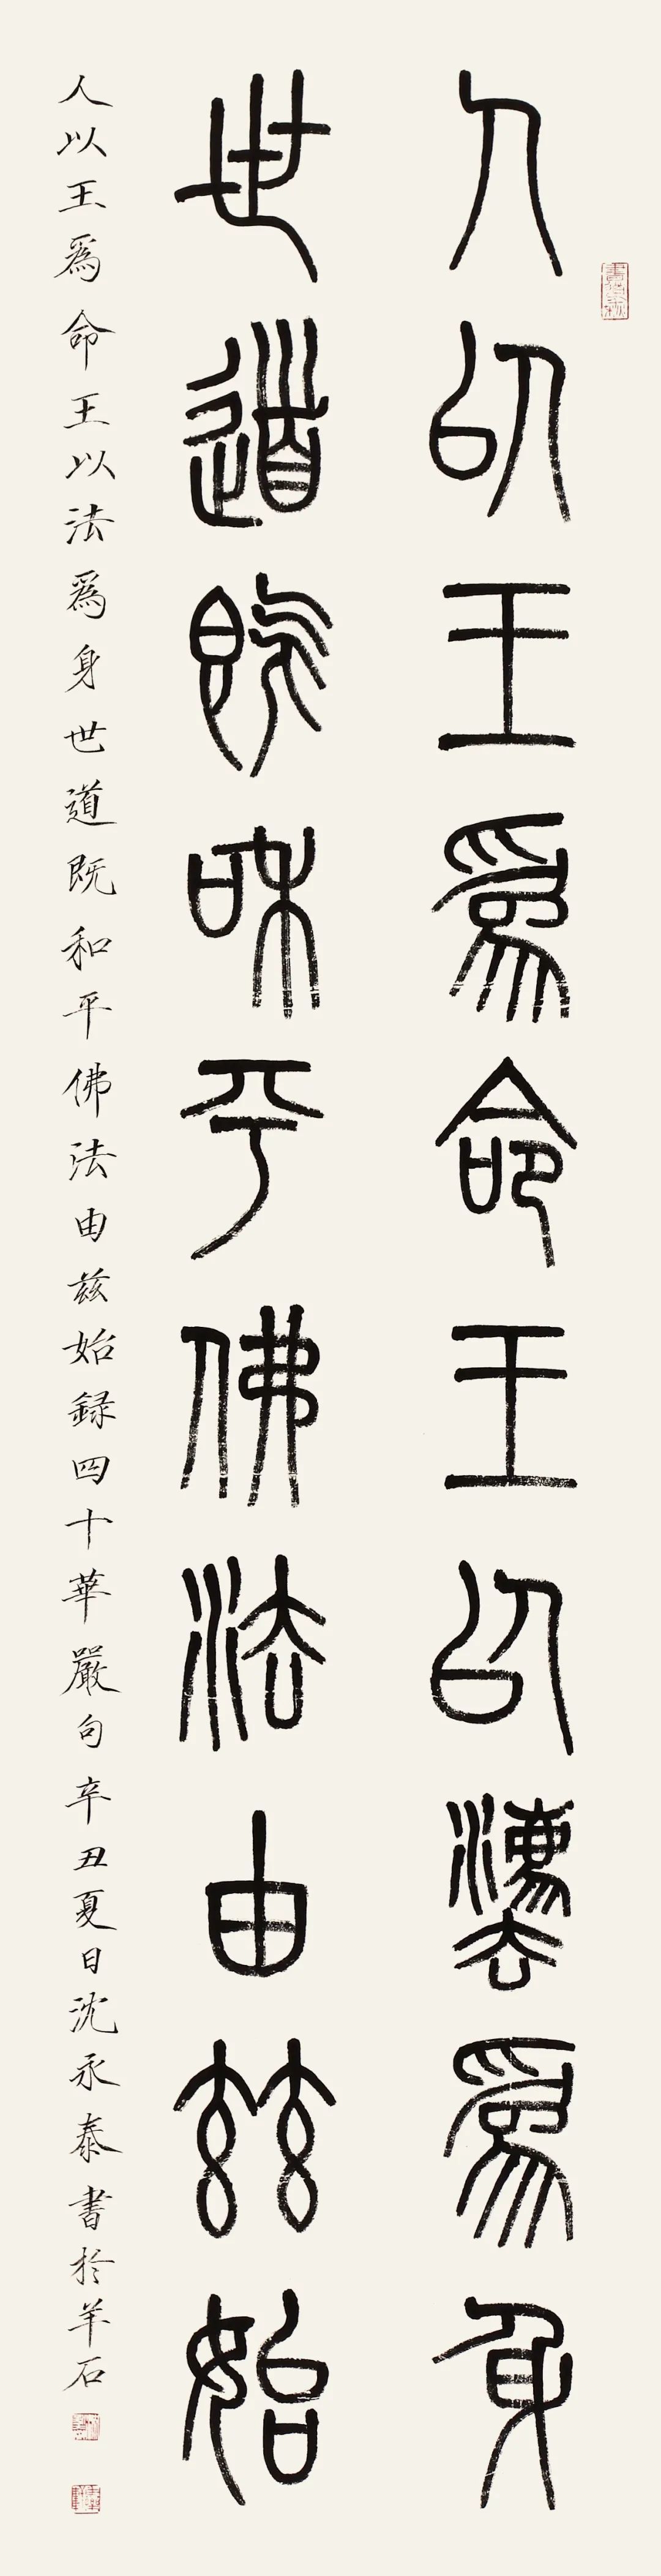 人以王爲命王以灋爲身
世道既和平佛法由兹始
人以王爲命王以法爲身世道既和平佛法由兹始録四十華嚴句辛丑夏日沈永泰書於羊石